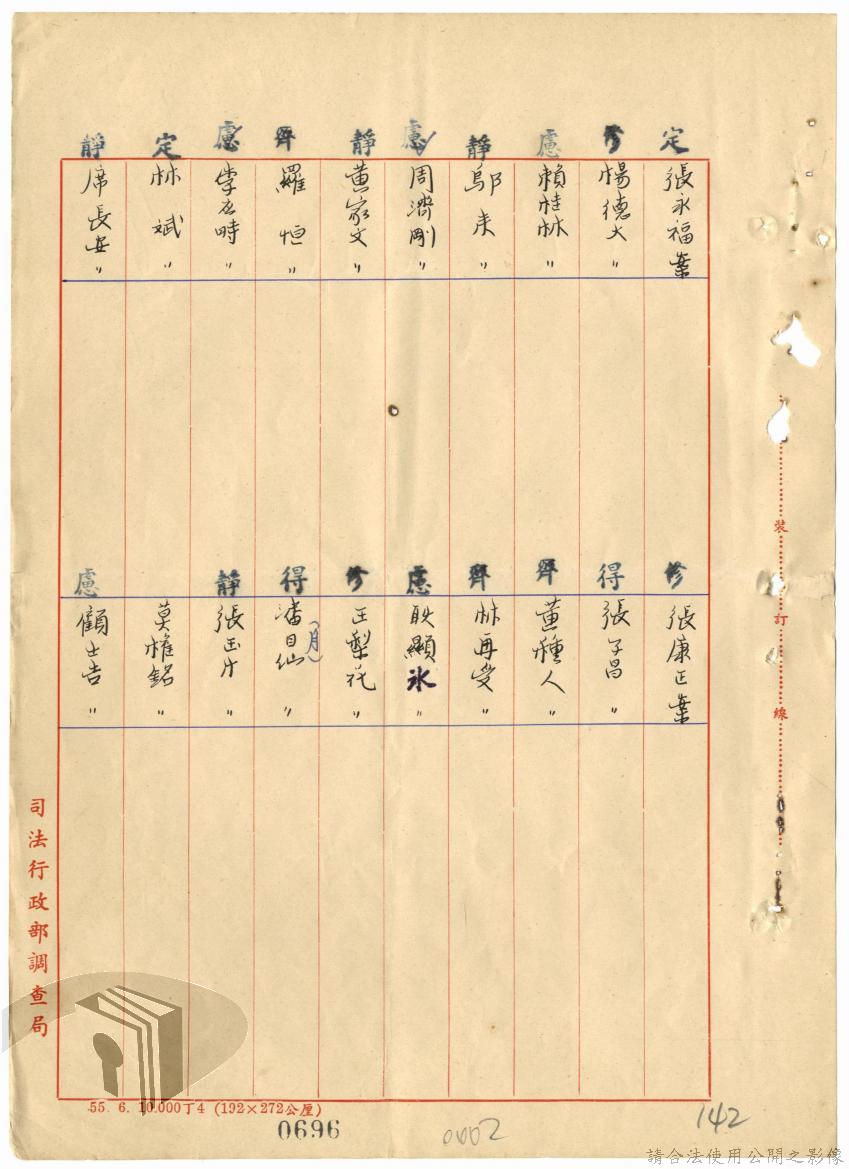 定 張永福 案
修 楊德大 〃
慮 賴桂林 〃
靜 鄔来 〃
慮 周濟剛 〃
靜 黃家文 〃
齊 羅恒 〃
慮 李 時 〃
定 林斌 〃
靜 席長安 〃
修 張康正 案
得 張子昌 〃
齊 黃種人 〃
齊 林再受 〃
慮 耿顯氷 〃
修 王梨花 〃
得 潘日仙 〃
(月)
靜 張玉片 〃
莫榷銘 〃
慮 顧士吉 〃
裝訂線
司法行政部調查局
55. 6. 10.000丁4 (192×272公厘)
0696
0002
142
請合法使用公開之影像